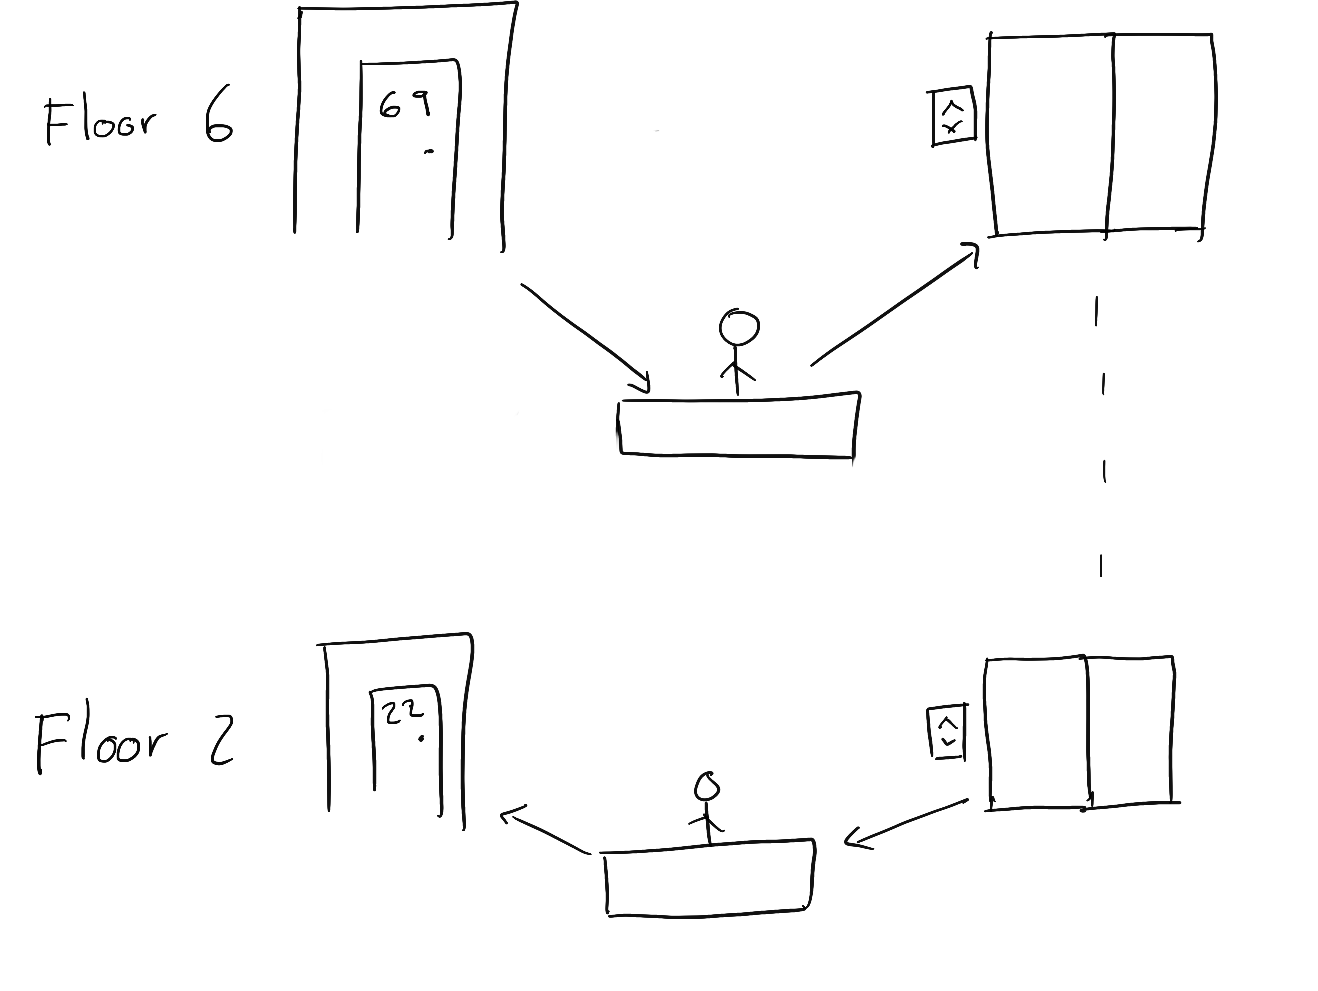 Floor 6
69
Floor 2
22